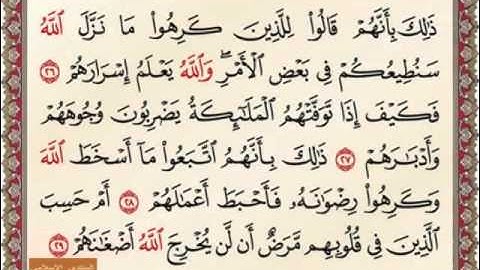 ذَٰلِكَ بِأَنَّهُمْ قَالُوا۟ لِلَّذِينَ كَرِهُوا۟ مَا نَزَّلَ ٱللَّهُ
سَنُطِيعُكُمْ فِى بَعْضِ ٱلْأَمْرِ ۖ وَٱللَّهُ يَعْلَمُ إِسْرَارَهُمْ ٢٦
فَكَيْفَ إِذَا تَوَفَّتْهُمُ ٱلْمَلَـٰٓئِكَةُ يَضْرِبُونَ وُجُوهَهُمْ
وَأَدْبَـٰرَهُمْ ٢٧ ذَٰلِكَ بِأَنَّهُمُ ٱتَّبَعُوا۟ مَآ أَسْخَطَ ٱللَّهَ
وَكَرِهُوا۟ رِضْوَٰنَهُۥ فَأَحْبَطَ أَعْمَـٰلَهُمْ ٢٨ أَمْ حَسِبَ
ٱلَّذِينَ فِى قُلُوبِهِم مَّرَضٌ أَن لَّن يُخْرِجَ ٱللَّهُ أَضْغَـٰنَهُمْ ٢٩